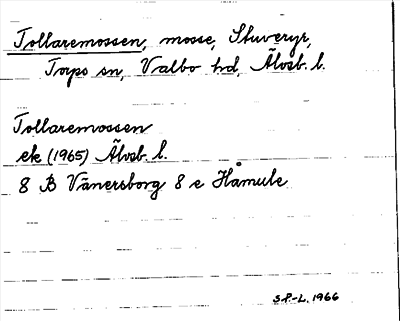 Tollaremossen, mosse, Stuveryr,
Torps sn, Valbo hd, Älvsb. l.
Tollaremossen
ek (1965) Älvsb. l.
8 B Vänersborg 8 e Håmule
S.P-L. 1966